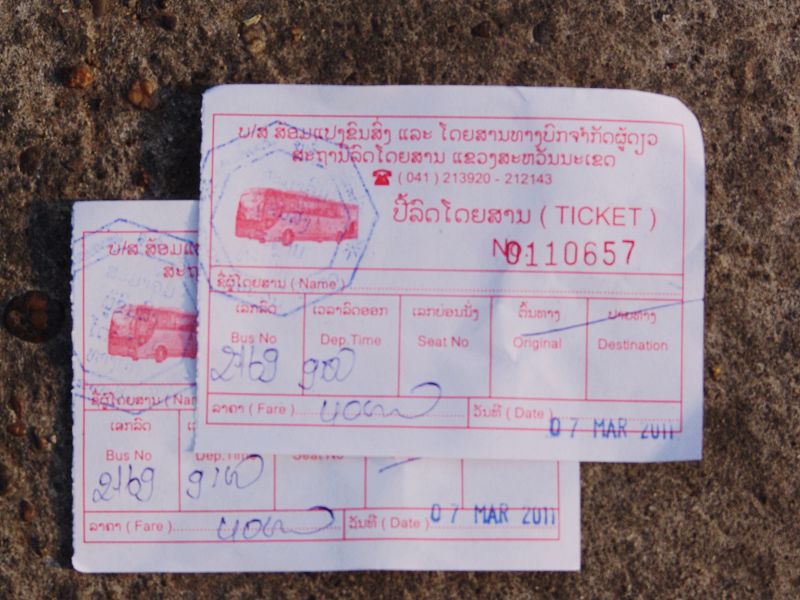 ບ/ສ ສ້ອມແປງຂົນສົ່ງ ແລະ ໂດຍສານທາງບົກຈຳກັດຜູ້ດຽວ
ສະຖານີລົດໂດຍສານ ແຂວງສະຫວັນນະເຂດ
( 041 ) 213920 - 212143
ປີ້ລົດໂດຍສານ ( TICKET )
No. 0110657
ຊື່ຜູ້ໂດຍສານ ( Name )
ເລກລົດ ເວລາລົດອອກ ເລກບ່ອນນັ່ງ ຕົ້ນທາງ ປາຍທາງ
Bus No Dep.Time Seat No Original Destination
2169
ລາຄາ ( Fare ) ວັນທີ ( Date )
07 MAR 2011
ບ/ສ ສ້ອມແ
ສະຖາ
ຊື່ຜູ້ໂດຍສານ ( Nam
ເລກລົດ
Bus No Dep.Time Seat No
2169
ລາຄາ ( Fare ) ວັນທີ ( Date ) 07 MAR 2011